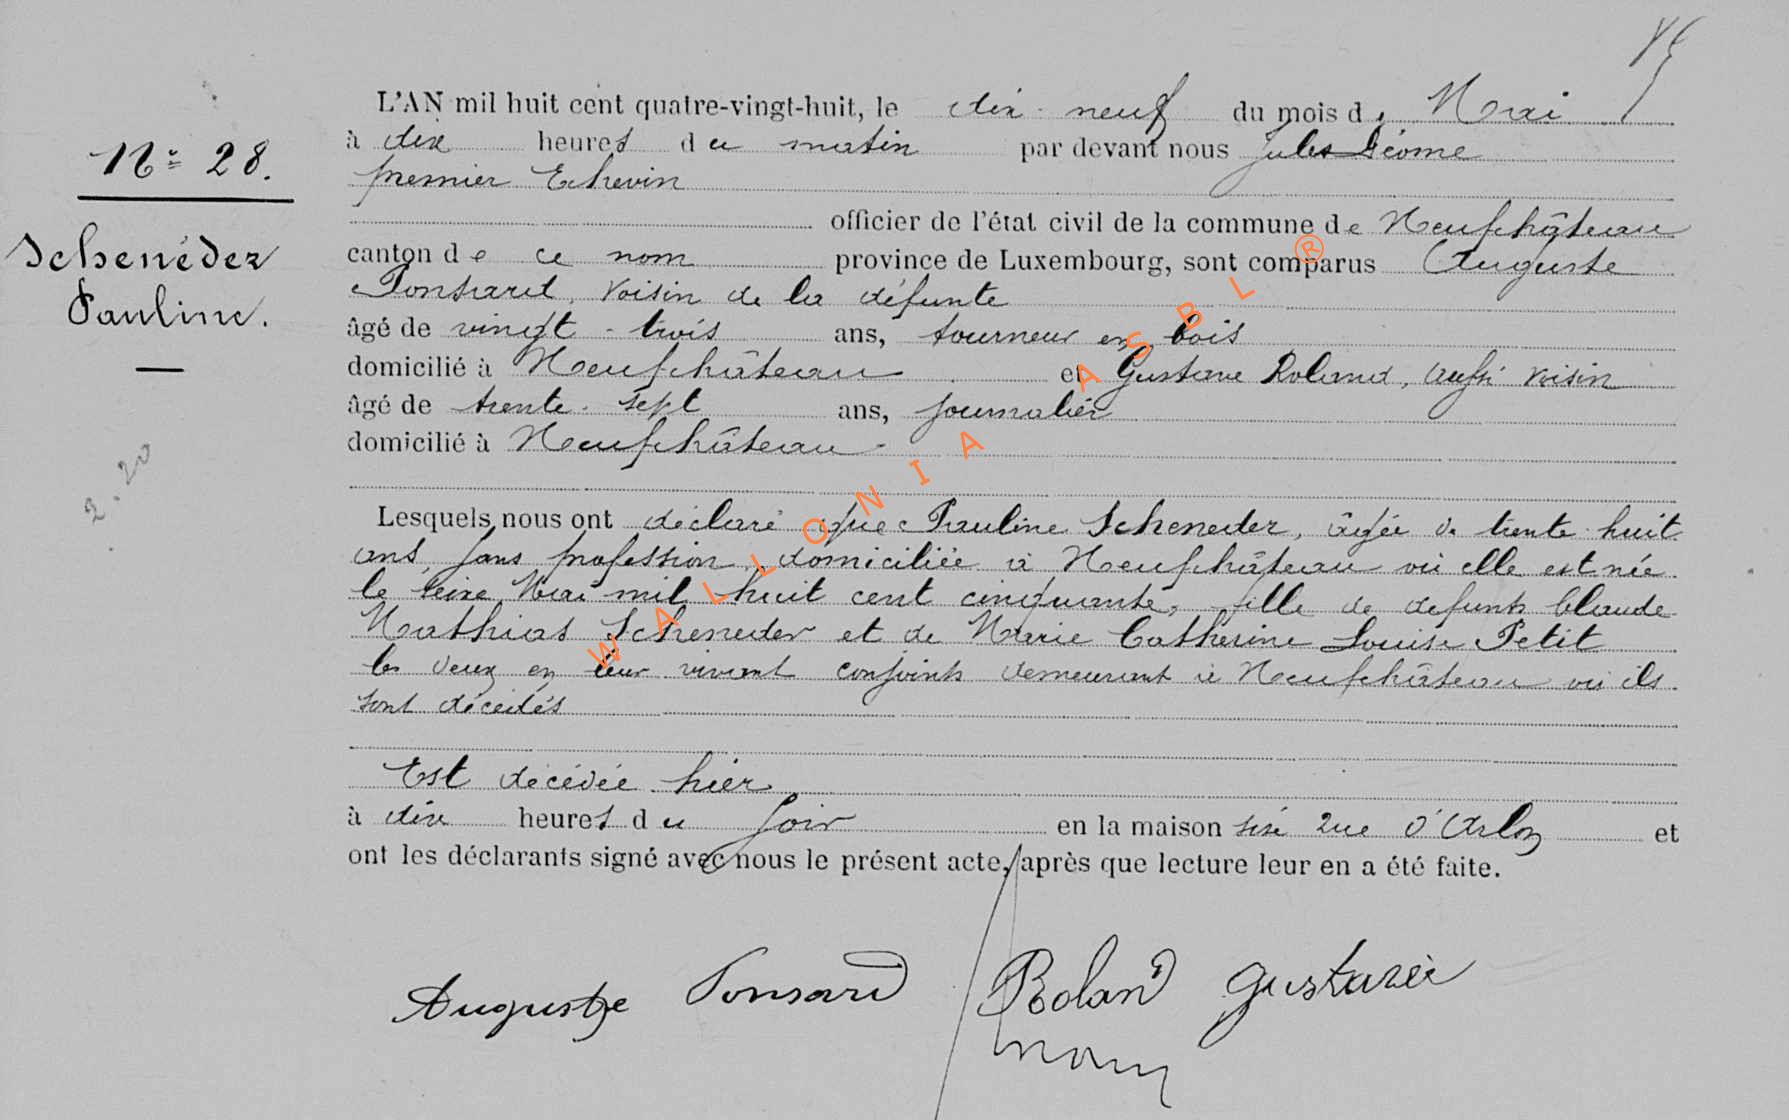 L'AN mil huit cent quatre-vingt-huit, le dix-neuf du mois de Mai
à dix heures du matin par devant nous Jules Géome
premier Echevin
officier de l'état civil de la commune de Neufchâteau
canton de ce nom province de Luxembourg, sont comparus Auguste
Ponsard, voisin de la défunte
âgé de vingt-trois ans, tourneur en bois
domicilié à Neufchâteau et Gustave Roland, aussi voisin
âgé de trente-sept ans, journalier
domicilié à Neufchâteau
Lesquels nous ont déclaré que Pauline Scheneder, âgée de trente huit
ans, sans profession, domiciliée à Neufchâteau où elle est née
le seize Mai mil huit cent cinquante, fille de défunts Claude
Mathias Scheneder et de Marie Catherine Louise Petit
les deux en leur vivant conjoints demeurant à Neufchâteau où ils
sont décédés
Est décédée hier
à dix heures du soir en la maison sise rue d'Arlon et
ont les déclarants signé avec nous le présent acte, après que lecture leur en a été faite.
Auguste Ponsard Roland gustave
N° 28.
Schenéder
Pauline.
2.20
WALLONIA ASBL ®